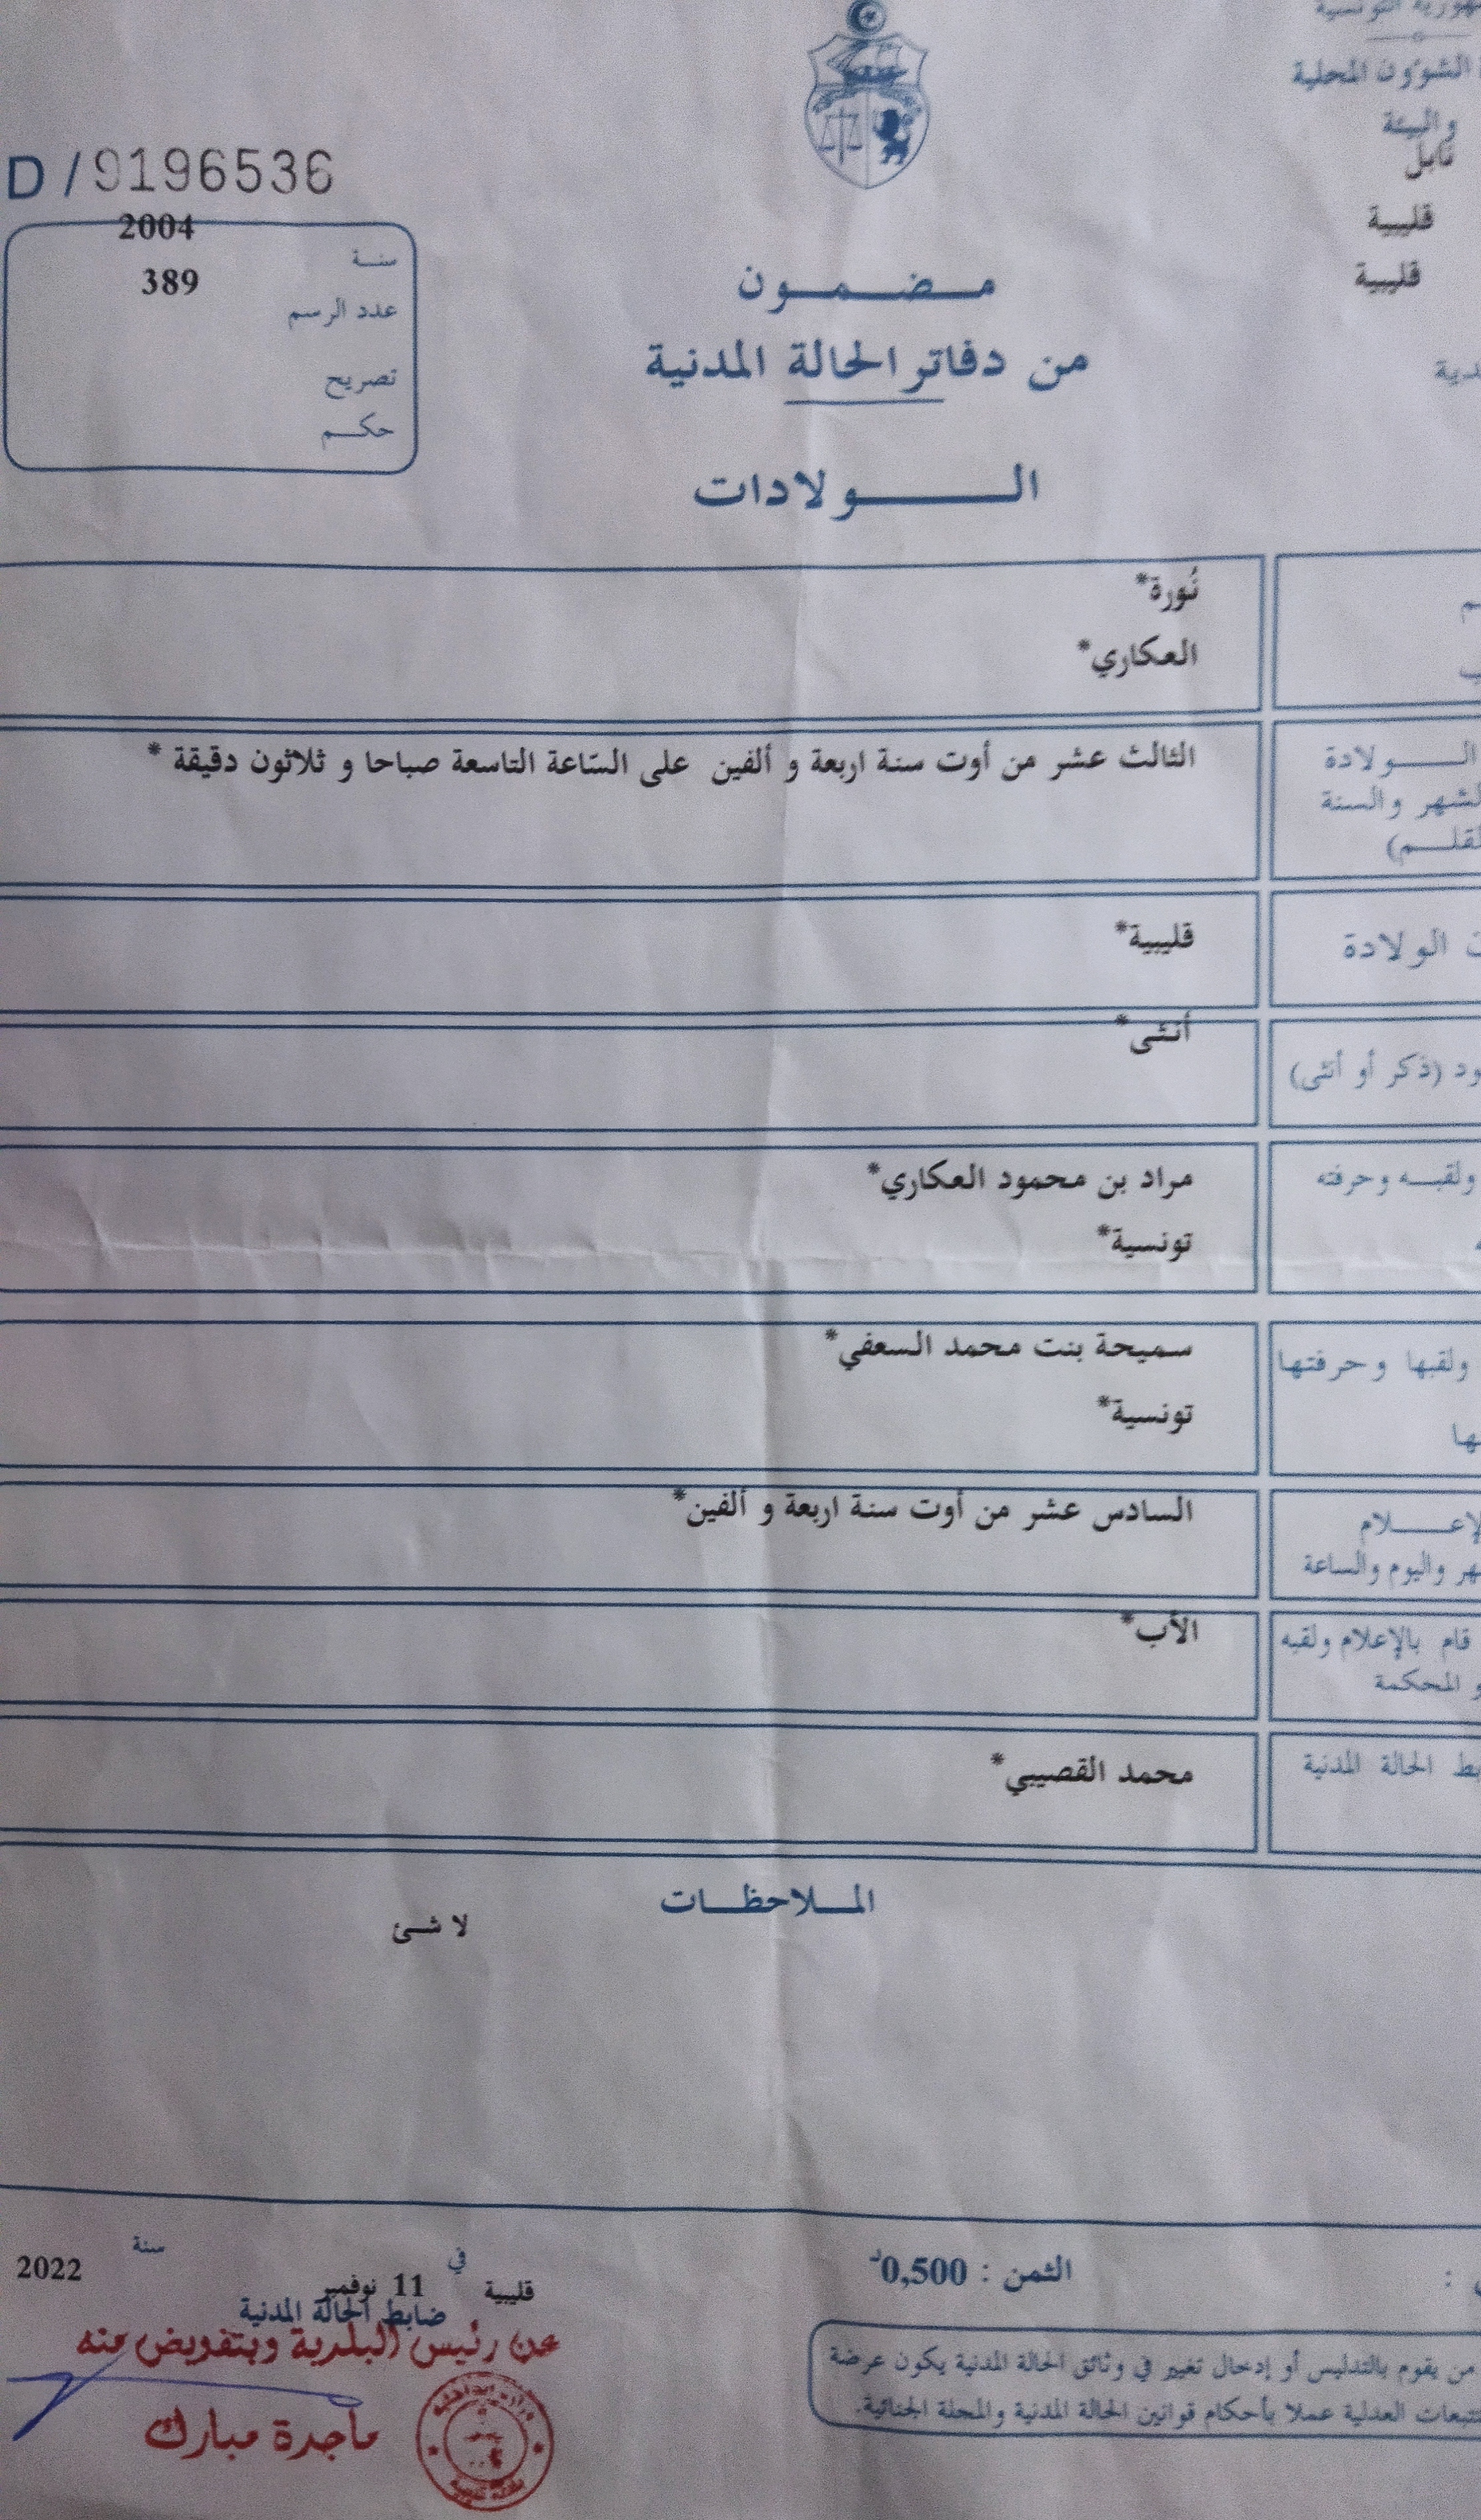 الشؤون المحلية
والبيئة
نابل
قليبية
قليبية
D / 9196536
سنة 2004
عدد الرسم 389
تصريح
حكم
مضمون
من دفاتر الحالة المدنية
الولادات
نُورة*
العكاري*
الولادة
والسنة
الثالث عشر من أوت سنة اربعة و ألفين على السّاعة التاسعة صباحا و ثلاثون دقيقة *
الولادة
قليبية*
(ذكر أو أنثى)
أنثى*
ولقبه وحرفته
مراد بن محمود العكاري*
تونسية*
ولقبها وحرفتها
سميحة بنت محمد السعفي*
تونسية*
واليوم والساعة
السادس عشر من أوت سنة اربعة و ألفين*
قام بالإعلام ولقبه
المحكمة
الأب*
الحالة المدنية
محمد القصيبي*
الملاحظات
لا شئ
الثمن : 0,500د
قليبية في 11 نوفمبر سنة 2022
ضابط الحالة المدنية
عن رئيس البلدية وبتفويض منه
ماجدة مبارك
من يقوم بالتدليس أو إدخال تغيير في وثائق الحالة المدنية يكون عرضة
العدلية عملا بأحكام قوانين الحالة المدنية والمجلة الجنائية.